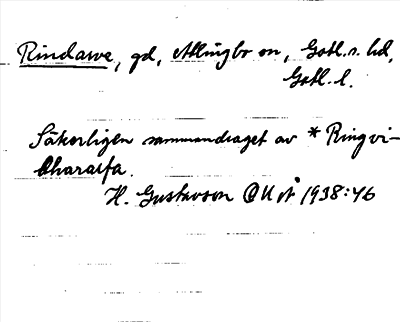 Rindarve, gd, Allingbo sn, Gotl. n. hd,
Gotl. l.
Säkerligen sammandraget av * Ringvi-
tharaifa.
H. Gustavson OUÅ 1938:46